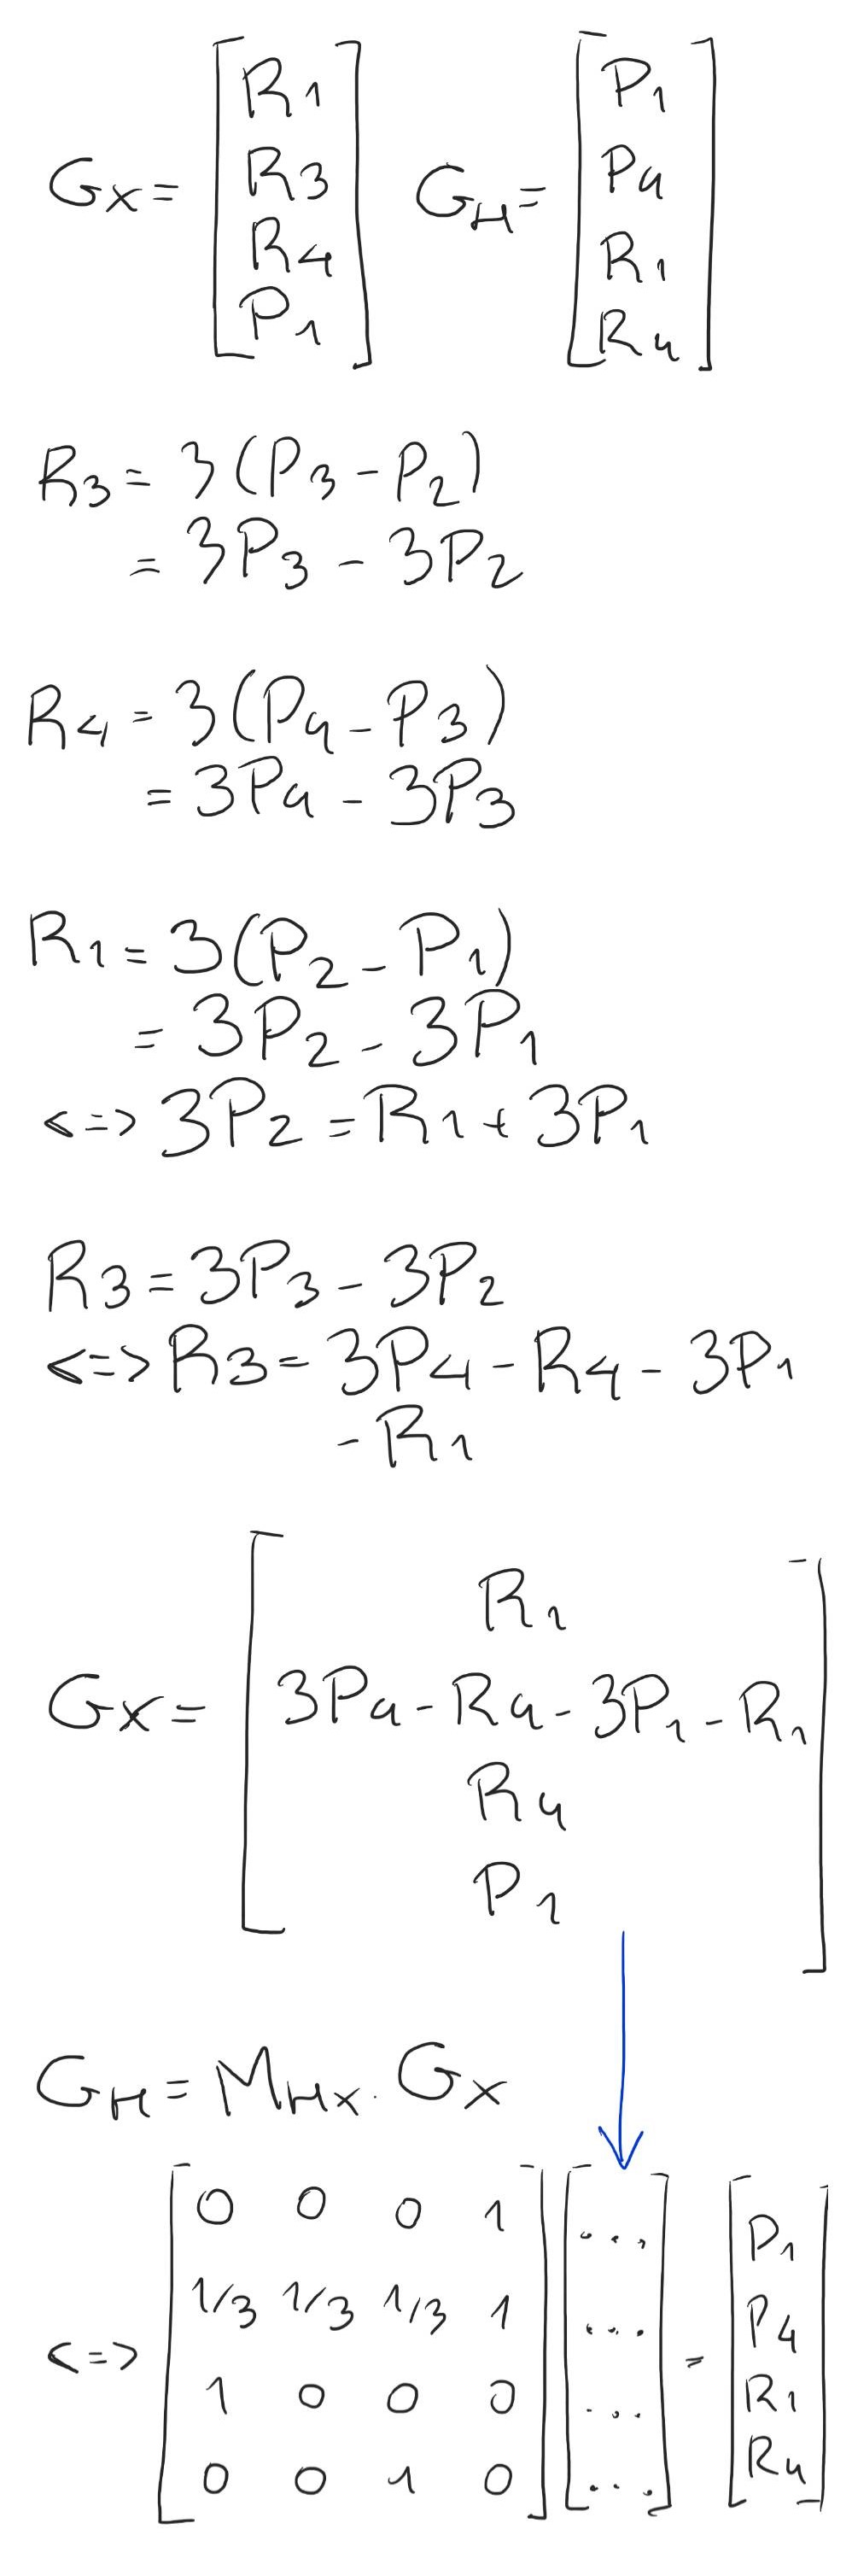 Gx = [R1 R3 R4 P1] GH = [P1 P4 R1 R4]
R3 = 3(P3 - P2)
= 3P3 - 3P2
R4 = 3(P4 - P3)
= 3P4 - 3P3
R1 = 3(P2 - P1)
= 3P2 - 3P1
<=> 3P2 = R1 + 3P1
R3 = 3P3 - 3P2
<=> R3 = 3P4 - R4 - 3P1
- R1
Gx = [R1
3P4 - R4 - 3P1 - R1
R4
P1]
GH = MHx · Gx
<=> [0 0 0 1
1/3 1/3 1/3 1
1 0 0 0
0 0 1 0] [... ... ... ...] = [P1 P4 R1 R4]